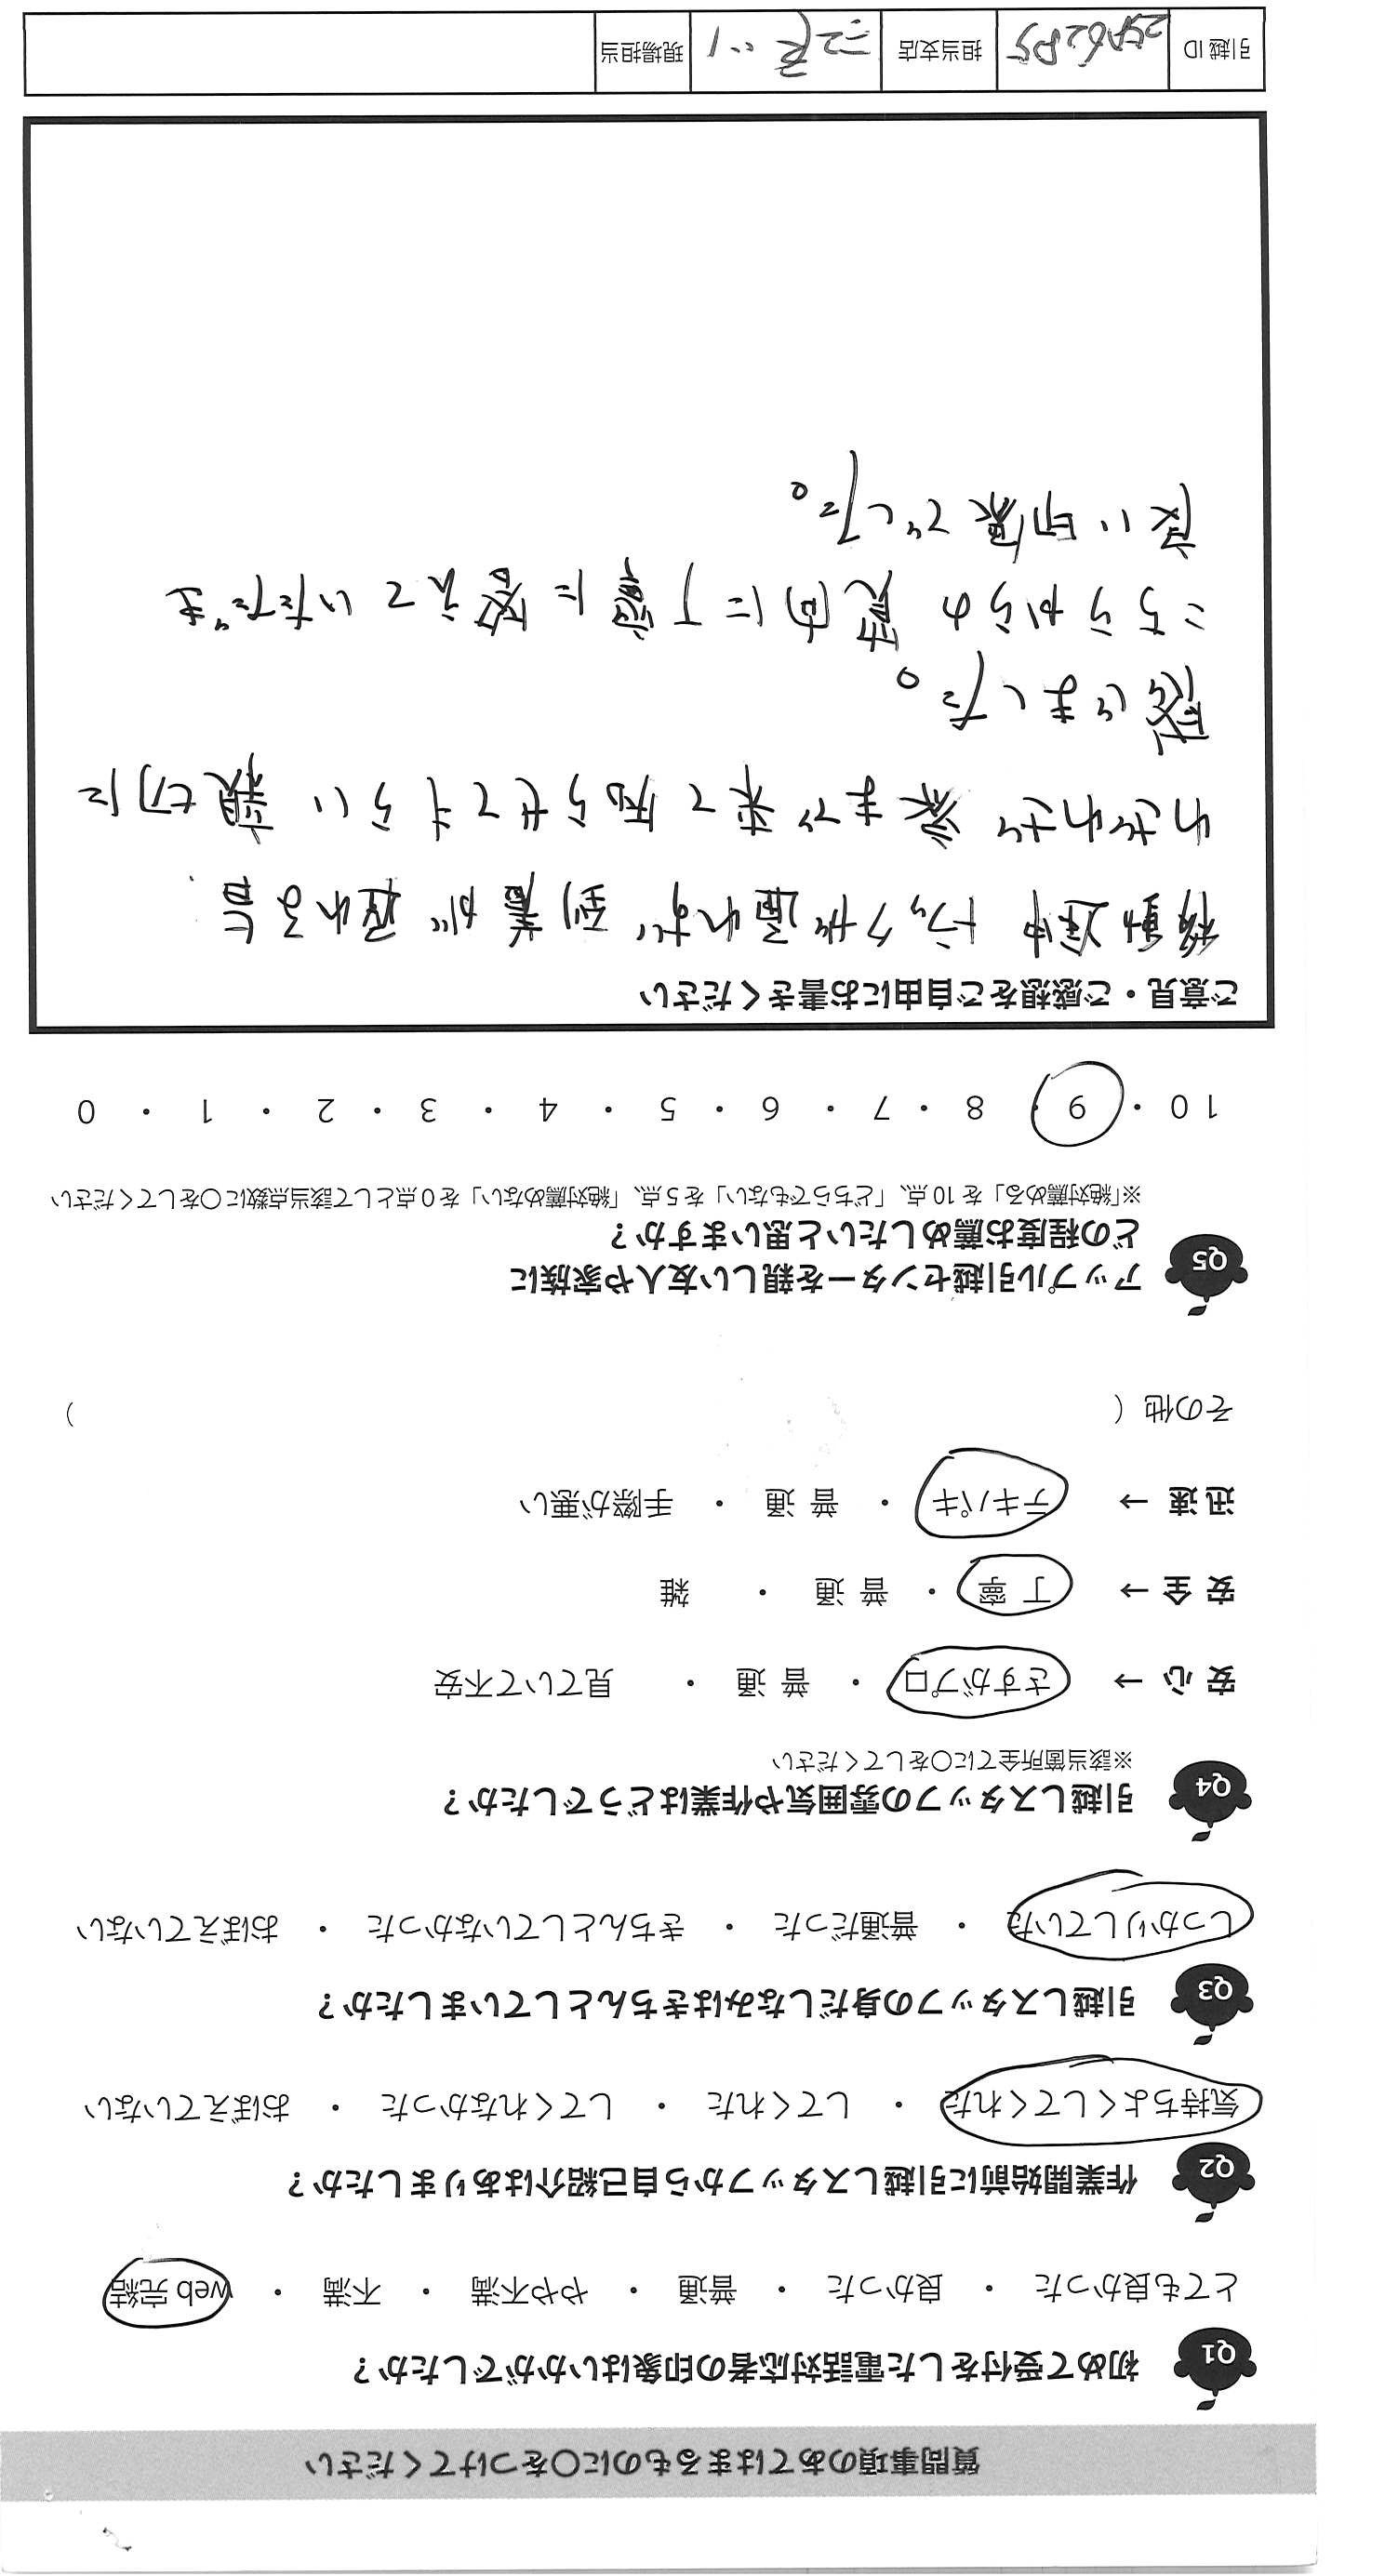 質問事項のあてはまるものに○をつけてください
Q1 初めて受付をした電話対応者の印象はいかがでしたか？
とても良かった ・ 良かった ・ 普通 ・ やや不満 ・ 不満 ・ web 完結
Q2 作業開始前に引越しスタッフから自己紹介はありましたか？
気持ちよくしてくれた ・ してくれた ・ してくれなかった ・ おぼえていない
Q3 引越しスタッフの身だしなみはきちんとしていましたか？
しっかりしていた ・ 普通だった ・ きちんとしていなかった ・ おぼえていない
Q4 引越しスタッフの雰囲気や作業はどうでしたか？
※該当箇所全てに○をしてください
安心 → さすがプロ ・ 普通 ・ 見ていて不安
安全 → 丁寧 ・ 普通 ・ 雑
迅速 → テキパキ ・ 普通 ・ 手際が悪い
その他（ ）
Q5 アップル引越センターを親しい友人や家族に
どの程度お薦めしたいと思いますか？
※「絶対薦める」を10点、「どちらでもない」を5点、「絶対薦めない」を0点として該当点数に○をしてください
10 ・ 9 ・ 8 ・ 7 ・ 6 ・ 5 ・ 4 ・ 3 ・ 2 ・ 1 ・ 0
ご意見・ご感想をご自由にお書きください
移動途中 トラックが通れず、到着が遅れる旨、
わざわざ家まで来て知らせてもらい 親切に
感じました。
こちらからの質問に丁寧に答えていただき
良い印象でした。
引越ID 担当支店 現場担当